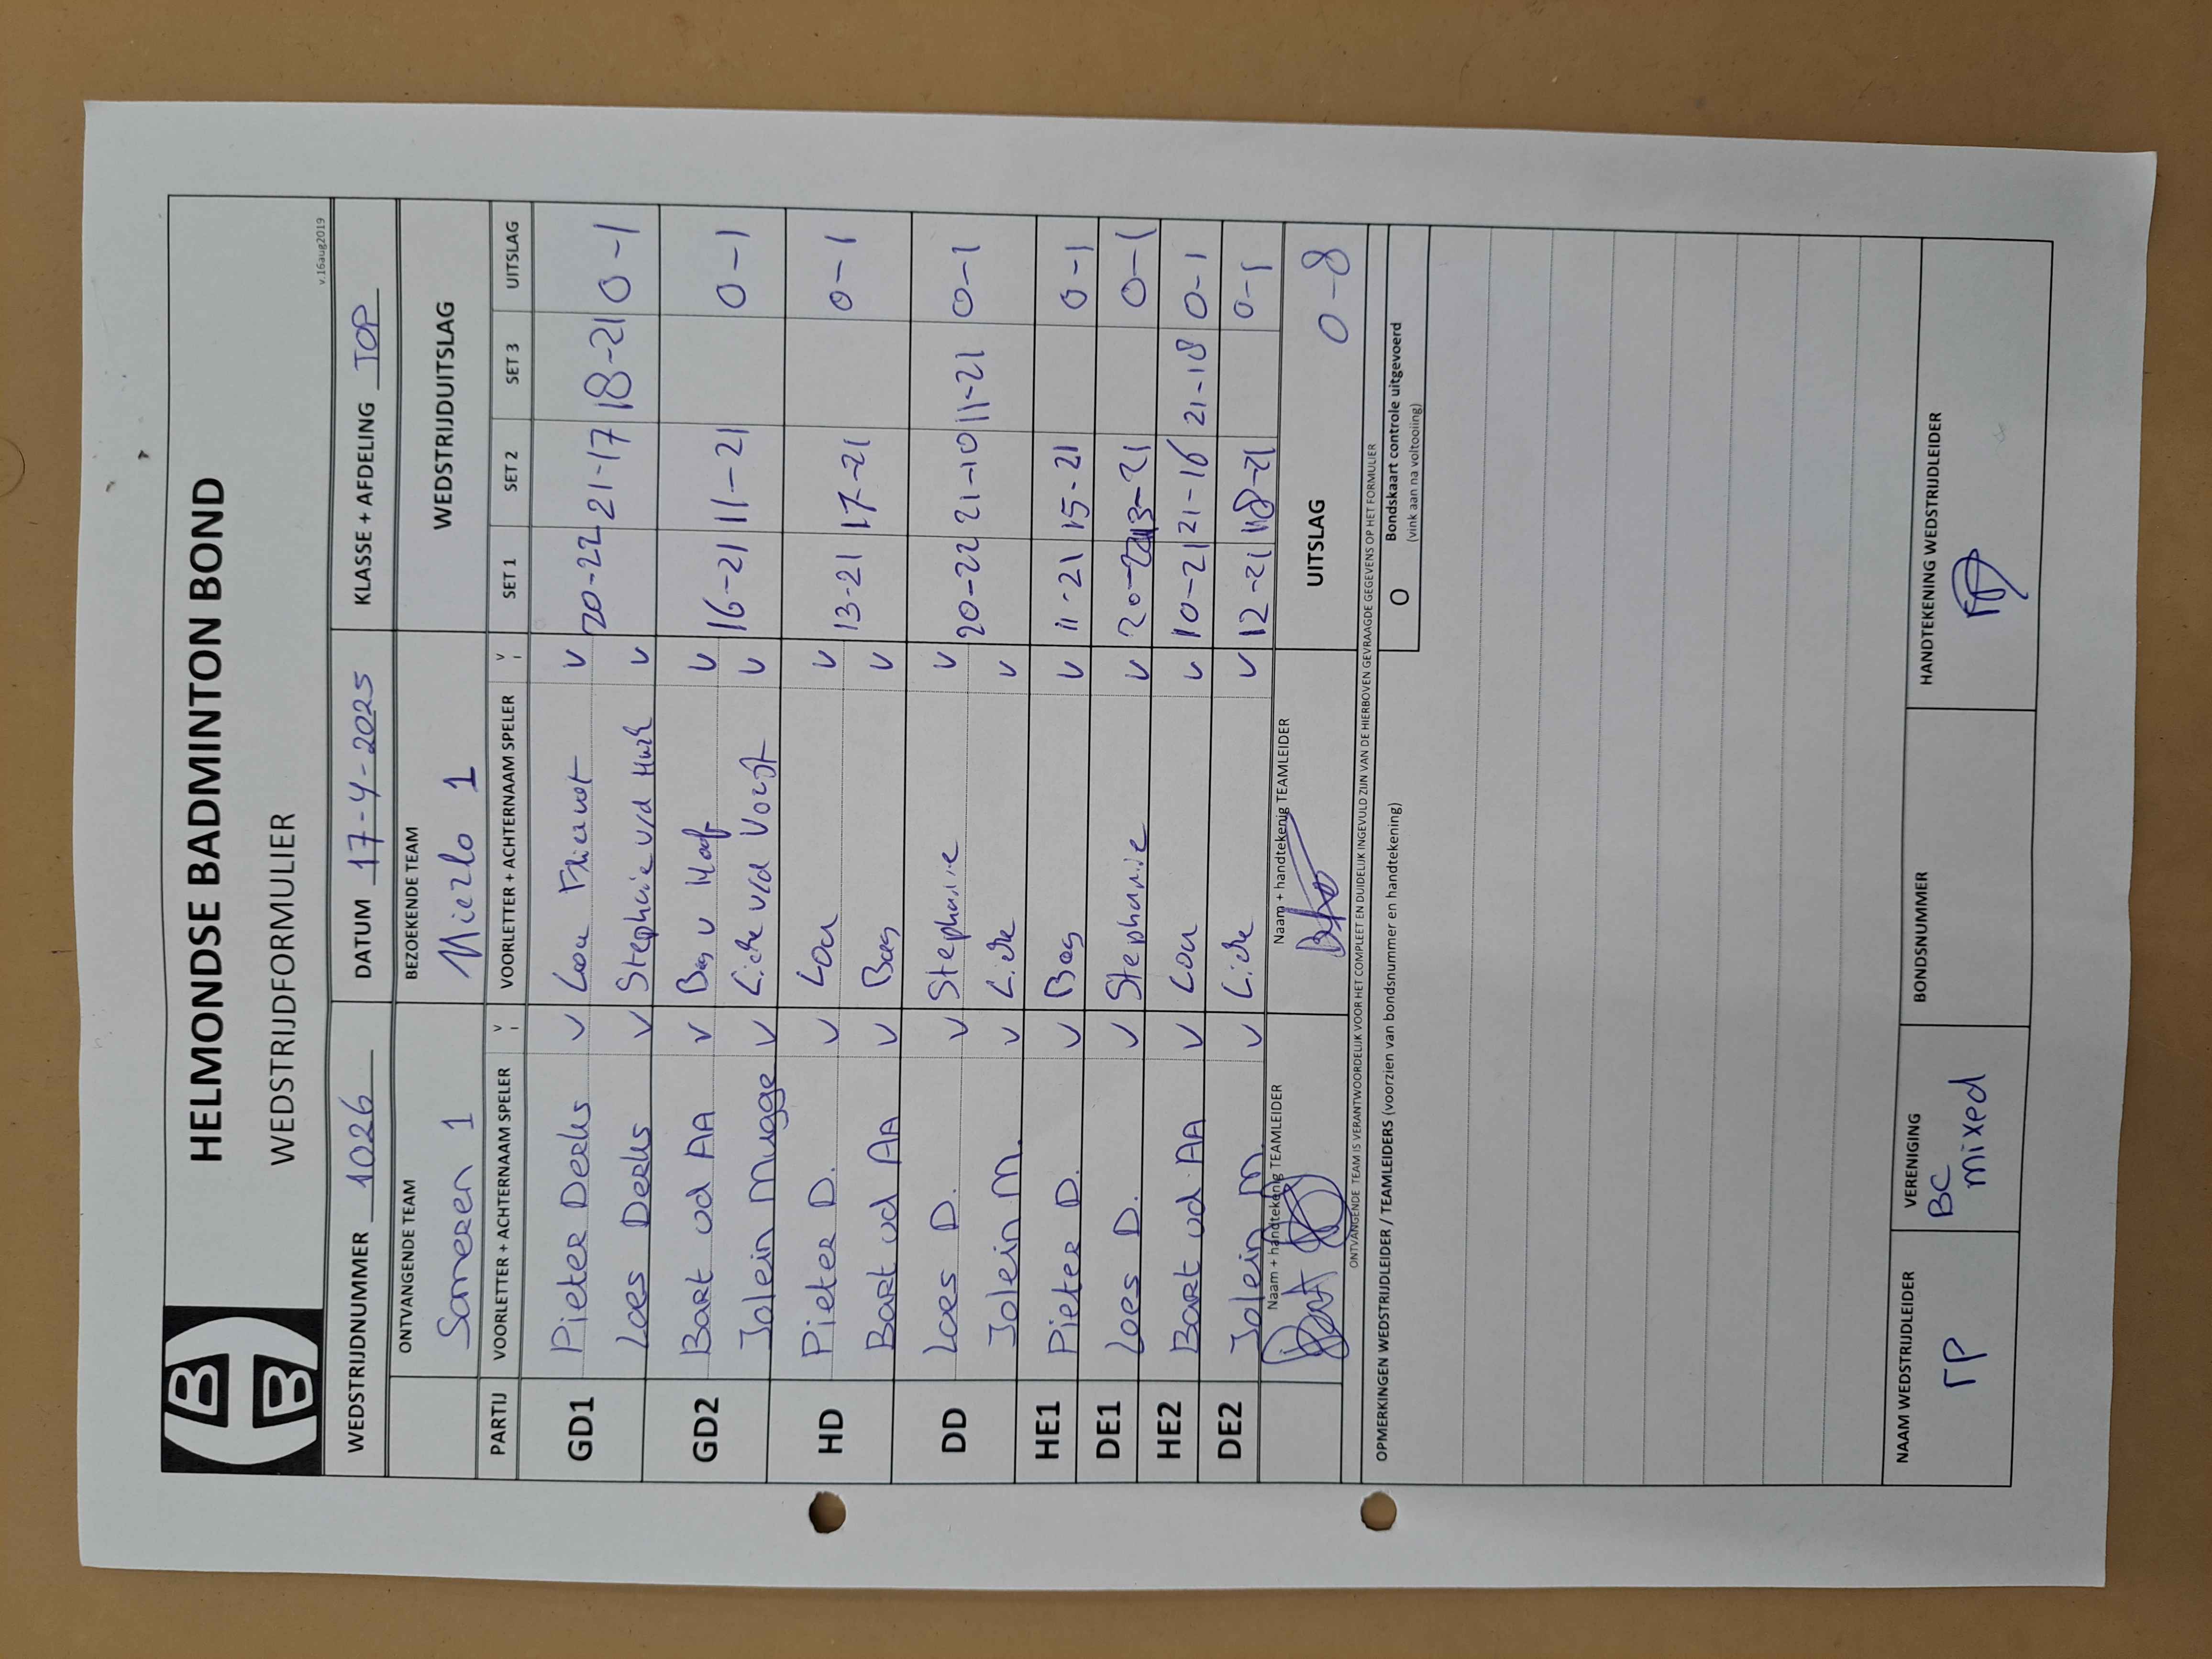 HELMONDSE BADMINTON BOND
WEDSTRIJDFORMULIER
v.16aug2019
WEDSTRIJDNUMMER 1026 DATUM 17-4-2025 KLASSE + AFDELING TOP
ONTVANGENDE TEAM BEZOEKENDE TEAM WEDSTRIJDUITSLAG
Someren 1 Mierlo 1
PARTIJ VOORLETTER + ACHTERNAAM SPELER V VOORLETTER + ACHTERNAAM SPELER V SET 1 SET 2 SET 3 UITSLAG
GD1 Pieter Derks V Lou V 20-22 21-17 18-21 0-1
Loes Derks V Stephanie v/d V
GD2 Bart vd AA V Bas v V 16-21 11-21 0-1
Jolein Mugge V Lieke v/d Vorst V
HD Pieter D. V Lou V 13-21 17-21 0-1
Bart vd AA V Bas V
DD Loes D. V Stephanie V 20-22 21-10 11-21 0-1
Jolein M. V Lieke V
HE1 Pieter D. V Bas V 11-21 15-21 0-1
DE1 Loes D. V Stephanie V 13-21 0-1
HE2 Bart vd AA V Lou V 10-21 21-16 21-18 0-1
DE2 Jolein M. V Lieke V 12-21 18-21 0-1
Naam + handtekenig TEAMLEIDER Naam + handtekenig TEAMLEIDER UITSLAG 0-8
ONTVANGENDE TEAM IS VERANTWOORDELIJK VOOR HET COMPLEET EN DUIDELIJK INGEVULD ZIJN VAN DE HIERBOVEN GEVRAAGDE GEGEVENS OP HET FORMULIER
OPMERKINGEN WEDSTRIJDLEIDER / TEAMLEIDERS (voorzien van bondsnummer en handtekening)
O Bondskaart controle uitgevoerd
(vink aan na voltooiing)
NAAM WEDSTRIJDLEIDER VERENIGING BONDSNUMMER HANDTEKENING WEDSTRIJDLEIDER
BC
mixed